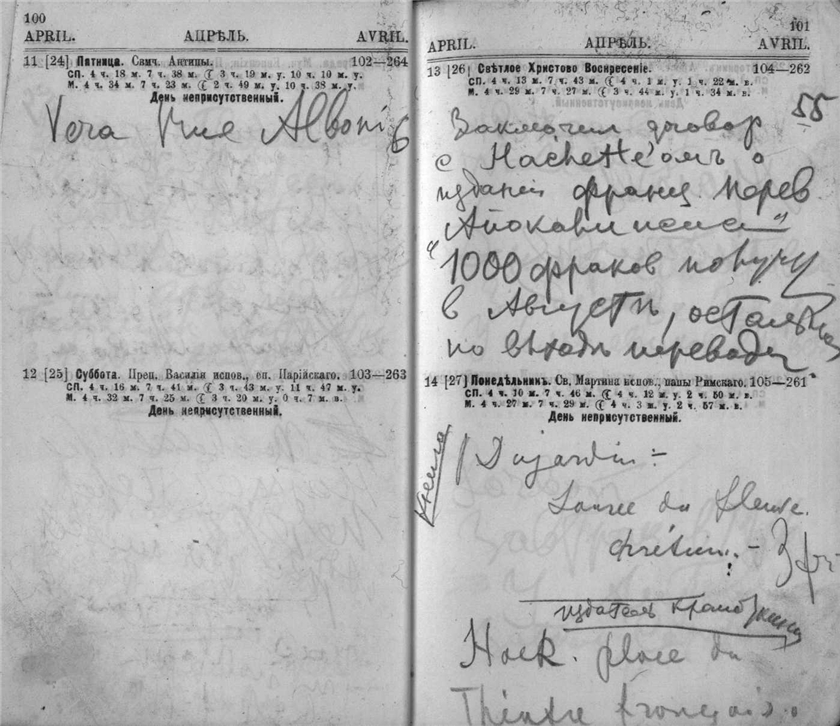 100
APRIL. АПРѢЛЬ. AVRIL.
11 [24] Пятница. Свмч. Антипы. 102—264
СП. 4 ч. 18 м. 7 ч. 38 м. ☾ 3 ч. 19 м. у. 10 ч. 10 м. у.
М. 4 ч. 34 м. 7 ч. 23 м. ☾ 2 ч. 49 м. у. 10 ч. 38 м. у.
День неприсутственный.
Vera rue Alboni 6
12 [25] Суббота. Преп. Василія испов., еп. Парійскаго. 103—263
СП. 4 ч. 16 м. 7 ч. 41 м. ☾ 3 ч. 43 м. у. 11 ч. 47 м. у.
М. 4 ч. 32 м. 7 ч. 25 м. ☾ 3 ч. 20 м. у. 0 ч. 7 м. в.
День неприсутственный.
101
APRIL. АПРѢЛЬ. AVRIL.
13 [26] Свѣтлое Христово Воскресеніе. 104—262
СП. 4 ч. 13 м. 7 ч. 43 м. ☾ 4 ч. 1 м. у. 1 ч. 22 м. в.
М. 4 ч. 29 м. 7 ч. 27 м. ☾ 3 ч. 44 м. у. 1 ч. 34 м. в.
День неприсутственный.
55
Заключил договор
с Hachette'омъ о
издании франц. перев
"Апокалипсиса"
1000 франков получу
в Августѣ, остальныя
по выходѣ перевода
14 [27] Понедѣльникъ. Св. Мартина испов., папы Римскаго. 105—261
СП. 4 ч. 10 м. 7 ч. 46 м. ☾ 4 ч. 12 м. у. 2 ч. 50 м. в.
М. 4 ч. 27 м. 7 ч. 29 м. ☾ 4 ч. 3 м. у. 2 ч. 57 м. в.
День неприсутственный.
Книга
Dujardin:
Source du fleuve
chrétien. - 3 fr
издатель
Hock. place du
Théatre français.